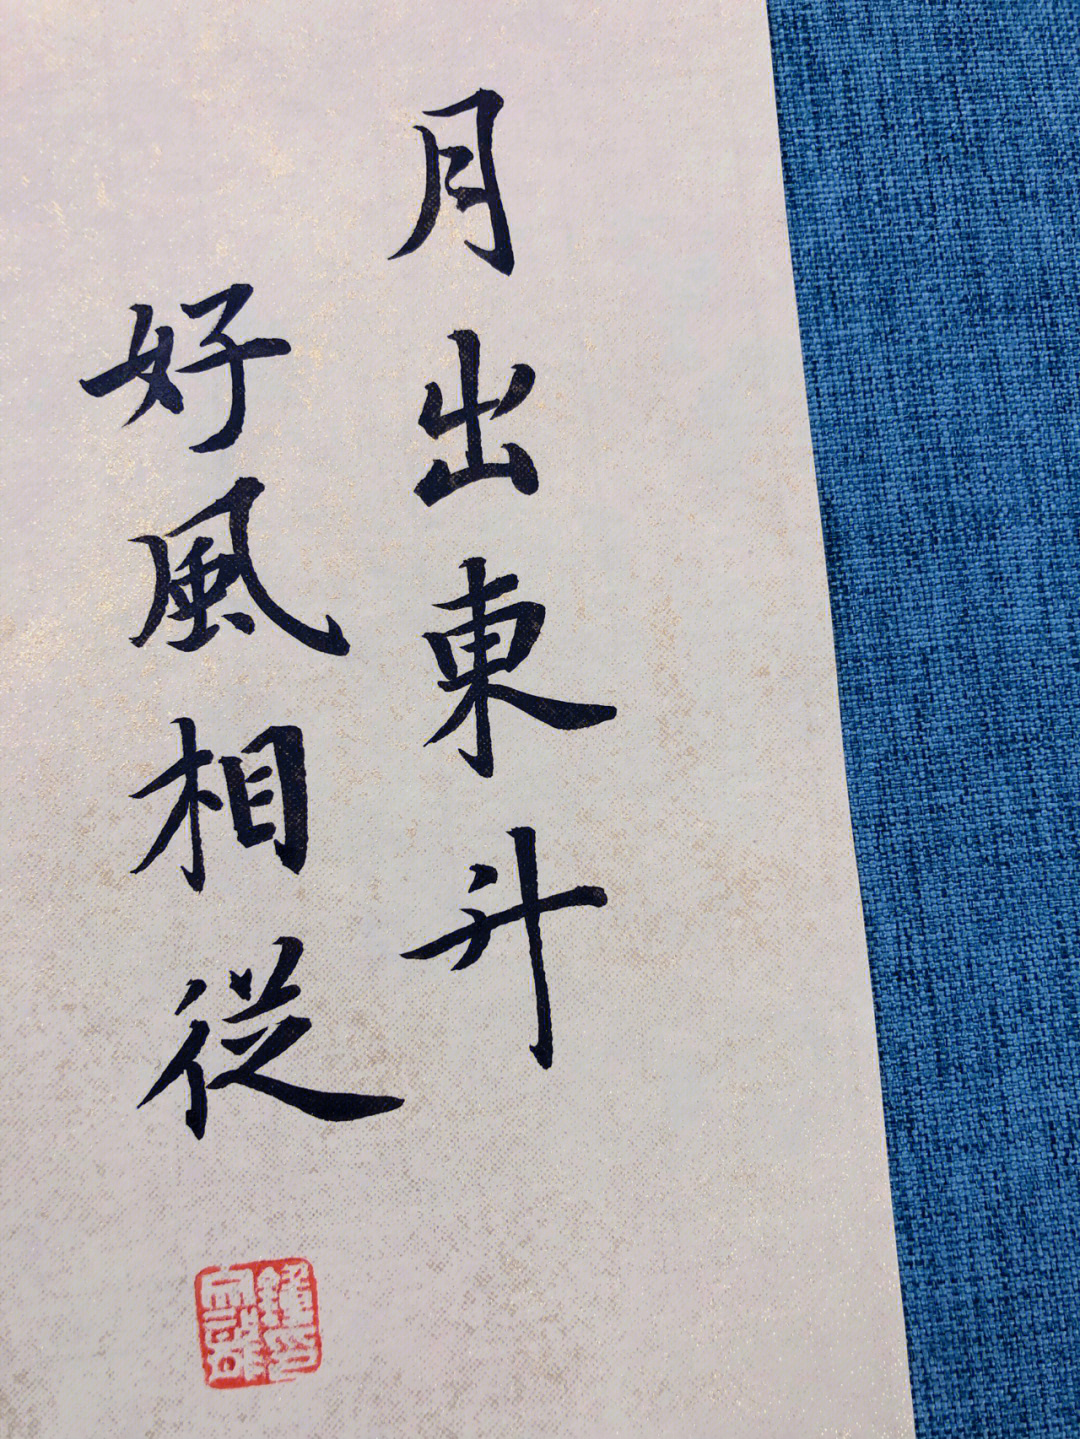 月出東升
好風相従